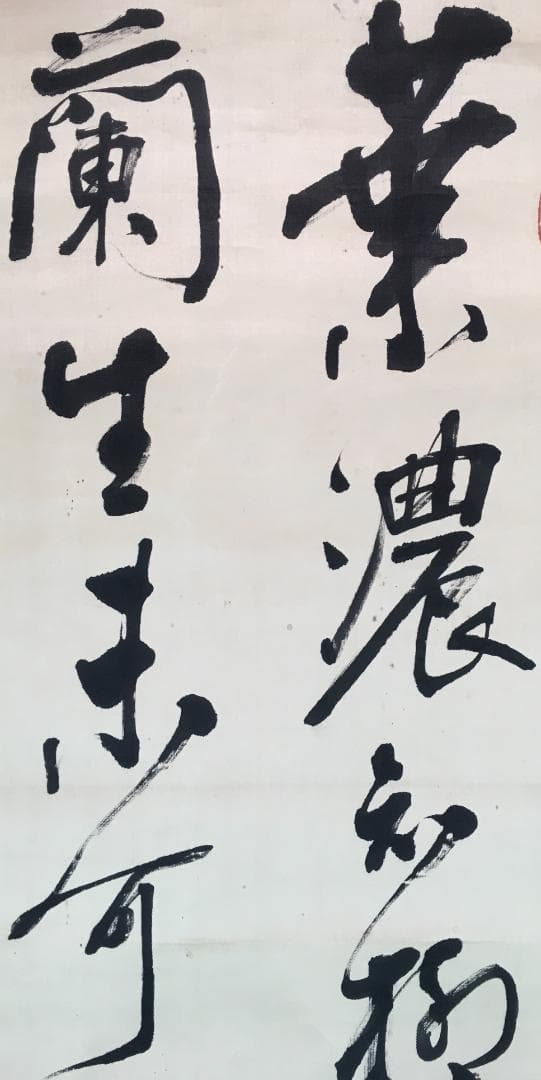 葉濃知柳
蘭生未可